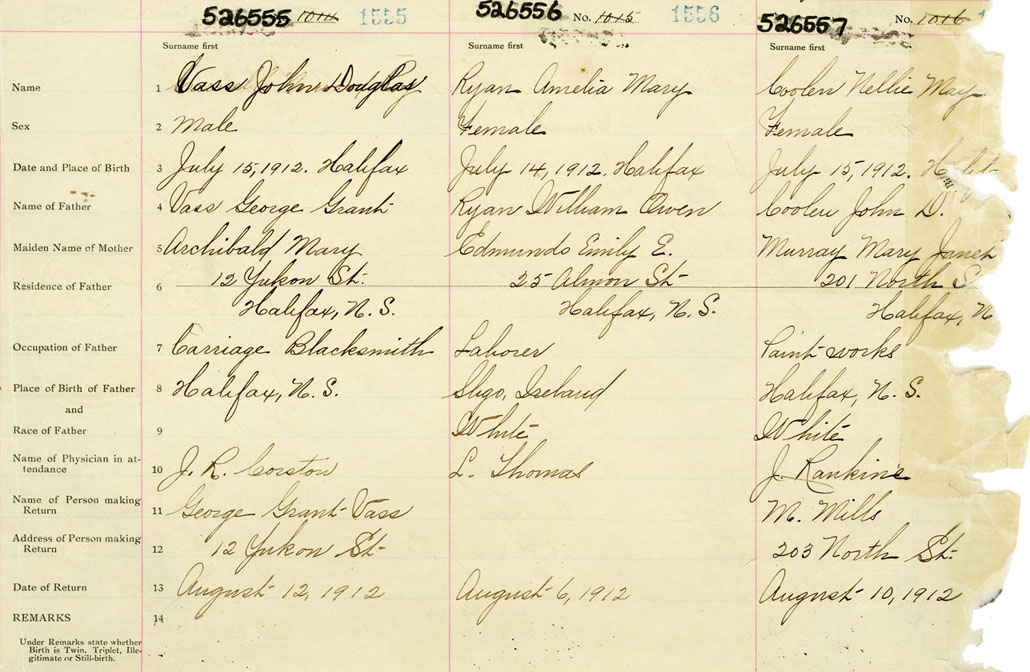 526555 1014 1555 526556 No. 1015 1556 526557 No. 1016
Surname first Surname first Surname first
Name 1 Vass John Douglas Ryan Amelia Mary Coolen Nellie May
Sex 2 Male Female Female
Date and Place of Birth 3 July 15, 1912. Halifax July 14, 1912. Halifax July 15, 1912.
Name of Father 4 Vass George Grant Ryan William Owen Coolen John D.
Maiden Name of Mother 5 Archibald Mary Edmunds Emily E. Murray Mary Janet
Residence of Father 6 12 Yukon St. 25 Almon St 201 North S
Halifax, N.S. Halifax, N.S. Halifax, N
Occupation of Father 7 Carriage Blacksmith Laborer Paint works
Place of Birth of Father 8 Halifax, N.S. Sligo, Ireland Halifax, N.S.
and
Race of Father 9 White White
Name of Physician in at-
tendance 10 J. R. Corston L. Thomas J. Rankine
Name of Person making
Return 11 George Grant Vass M. Mills
Address of Person making
Return 12 12 Yukon St. 203 North St.
Date of Return 13 August 12, 1912 August 6, 1912 August 10, 1912
REMARKS 14
Under Remarks state whether
Birth is Twin, Triplet, Ille-
gitimate or Still-birth.